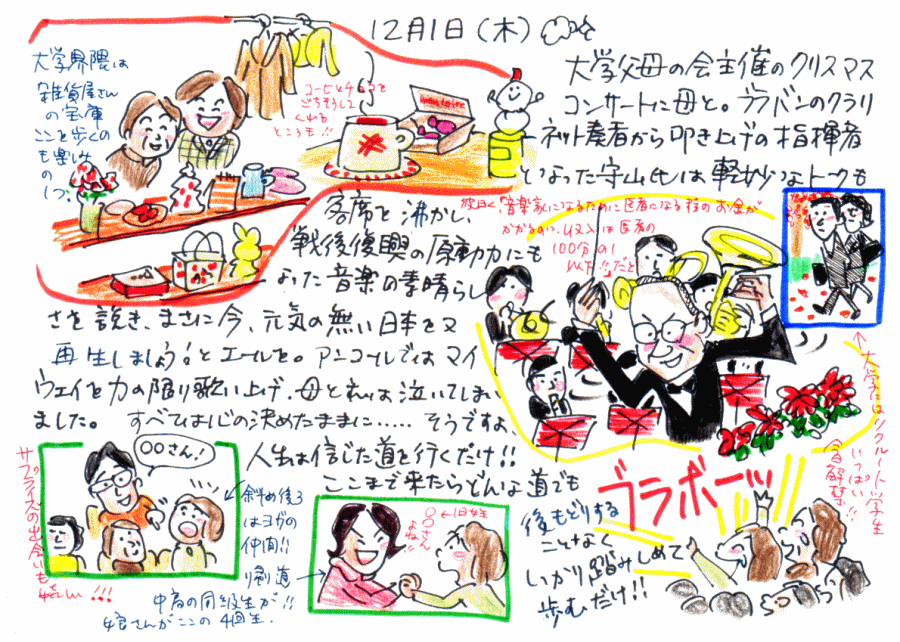 12月1日(木)
大学父母の会主催のクリスマス
コンサートに母と。ブラバンのクラリ
ネット奏者から叩き上げの指揮者
となった守山氏は軽妙なトークも
客席を沸かし、
戦後復興の原動力にも
なった音楽の素晴らし
さを説き、まさに今、元気の無い日本を又
再生しましょう!とエールを。アンコールではマイ
ウェイを力の限り歌い上げ、母とれいは泣いてしまい
ました。すべては心の決めたままに.....そうですよ、
人生は信じた道を行くだけ!!
ここまで来たらどんな道でも
後もどりする
ことなく
しっかり踏みしめて
歩むだけ!!
大学界隈は
雑貨屋さん
の宝庫
ここを歩くの
も楽しみ
の
1つ。
コーヒーとチョコを
ごちそうして
くれる
ところも!!
彼曰く、「音楽家になるために医者になる程のお金が
かかるのに、収入は医者の
100分の1
以下!!」だと
大学はリクルート学生
いっぱい
今日解禁!!
ブラボーッ
サプライズの出会いも
楽しい!!!
○○さん!
斜め後ろ
はヨガの
仲間!!
帰り道
中高の同級生が!!
娘さんがここの4回生.
○○さん
よね!!
←旧姓